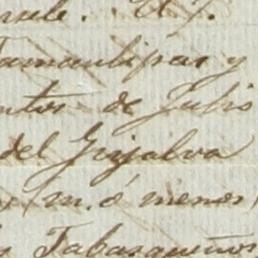 Tamaulipas y
de Julio
del Grijalva
m. ó menos
Tabasqueños